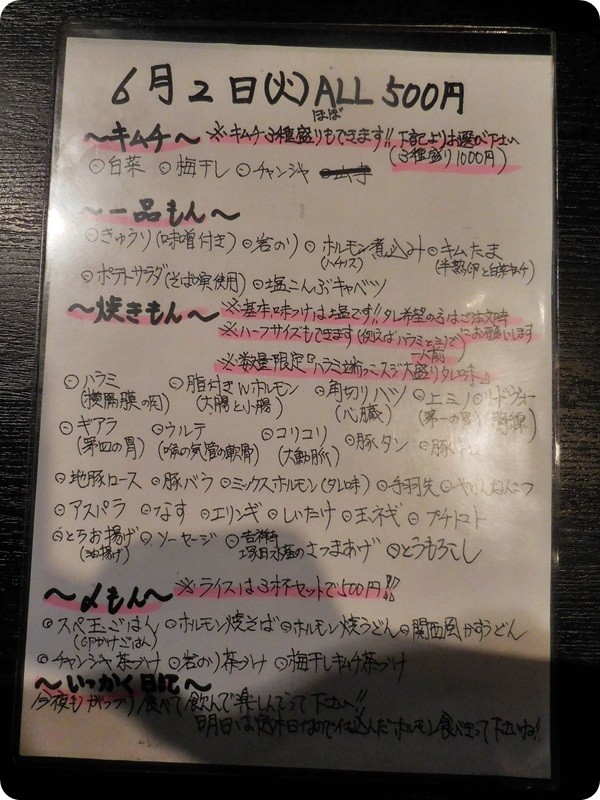 6月2日(火) ALL 500円
ほぼ
〜キムチ〜 ※キムチ3種盛りもできます!! 下記よりお選び下さい
(3種盛り1000円)
○白菜 ○梅干し ○チャンジャ
〜一品もん〜
○きゅうり(味噌付き) ○岩のり ○ホルモン煮込み ○キムたま
(ハチノス) (半熟卵と白菜キムチ)
○ポテトサラダ(そば の実使用) ○塩こんぶキャベツ
〜焼きもん〜 ※基本味つけは塩です!! タレ希望の方はご注文時にお願いします
※ハーフサイズもできます(例えばハラミとミノで一人前)
※数量限定『ハラミ スジ大盛りタレ味』
○ハラミ ○脂付きWホルモン ○角切りハツ ○上ミノ ○リードヴォー
(横隔膜の肉) (大腸と小腸) (心臓) (第一の胃) (胸腺)
○ギアラ ○ウルテ ○コリコリ ○豚タン
(第四の胃) (喉の気管の軟骨) (大動脈)
○地豚ロース ○豚バラ ○ミックスホルモン(タレ味) ○手羽先
○アスパラ ○なす ○エリンギ ○しいたけ ○玉ネギ ○プチトマト
○とちお揚げ ○ソーセージ ○吉祥寺塚田水産のさつまあげ ○とうもろこし
(油揚げ)
〜〆もん〜 ※ライスは3杯セットで500円!!
○スペ玉ごはん ○ホルモン焼そば ○ホルモン焼うどん ○関西風かすうどん
(卵かけごはん)
○チャンジャ茶づけ ○岩のり茶づけ ○梅干しキムチ茶づけ
〜いっかく日記〜
今夜もガッツリ食べて飲んで楽しんでって下さい!!
明日はお休日なので仕込んだホルモン食べきって下さいね!!